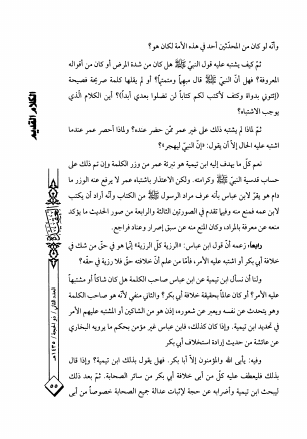 وأنّه لو كان من المحدّثين أحد في هذه الأمة لكان هو؟
ثمّ كيف يشتبه عليه قول النبيّ ﷺ هل كان من شدة المرض أو كان من أقواله
المعروفة؟ فهل أنّ النبيّ ﷺ قال مبهماً ومتمتماً؟ أو لم يقلها كلمة صريحة فصيحة
(إئتوني بدواة وكتف لأكتب لكم كتاباً لن تضلوا بعدي أبداً)؟ أين الكلام الّذي
يوجب الاشتباه؟
ثمّ لماذا لم يشتبه ذلك على غير عمر ممّن حضر عنده؟ ولماذا أحضر عمر عندما
اشتبه عليه الحال إلّا أن يقول: «إنّ النبيّ ليهجر»؟
نعم كلّ ما يهدف إليه ابن تيمية هو تبرئة عمر من وزر الكلمة وإن تم ذلك على
حساب قدسية النبيّ ﷺ وكرامته. ولكن الاعتذار باشتباه عمر لا يرفع عنه الوزر ما
دام هو يقرّ لابن عباس بأنه عرف مراد الرسول ﷺ من الكتاب وأنّه أراد أن يكتب
لابن عمه فمنع منه وفيما تقدم في الصورتين الثالثة والرابعة من صور الحديث ما يؤكد
منعه عن معرفة بالمراد وكان المنع منه عن سبق إصرار وعناد فراجع.
رابعاً، زعمه أنّ قول ابن عباس: «الرزية كلّ الرزية» إنّما هو في حقّ من شك في
خلافة أبي بكر أو اشتبه عليه الأمر، فأمّا من علم أنّ خلافته حقّ فلا رزية في حقّه؟
ولنا أن نسأل ابن تيمية عن ابن عباس صاحب الكلمة هل كان شاكاً أو مشتبهاً
عليه الأمر؟ أو كان عالماً بحقيقة خلافة أبي بكر؟ والثاني منفي لأنّه هو صاحب الكلمة
وهو يتحدث عن نفسه ويعبر عن شعوره، إذن هو من الشاكين أو المشتبه عليهم الأمر
في تحديد ابن تيمية. وإذا كان كذلك، فابن عباس غير مؤمن بحكم ما يرويه البخاري
عن عائشة من حديث إرادة استخلاف أبي بكر
وفيه: يأبى الله والمؤمنون إلّا أبا بكر. فهل يقول بذلك ابن تيمية؟ وإذا قال
بذلك فليعطف عليه كلّ من أبى خلافة أبي بكر من سائر الصحابة. ثمّ بعد ذلك
ليبحث ابن تيمية وأضرابه عن حجة لإثبات عدالة جميع الصحابة خصوصاً من أبى
العدد الثاني / ذو الحجة / ١٤٣٥هـ
٥٥